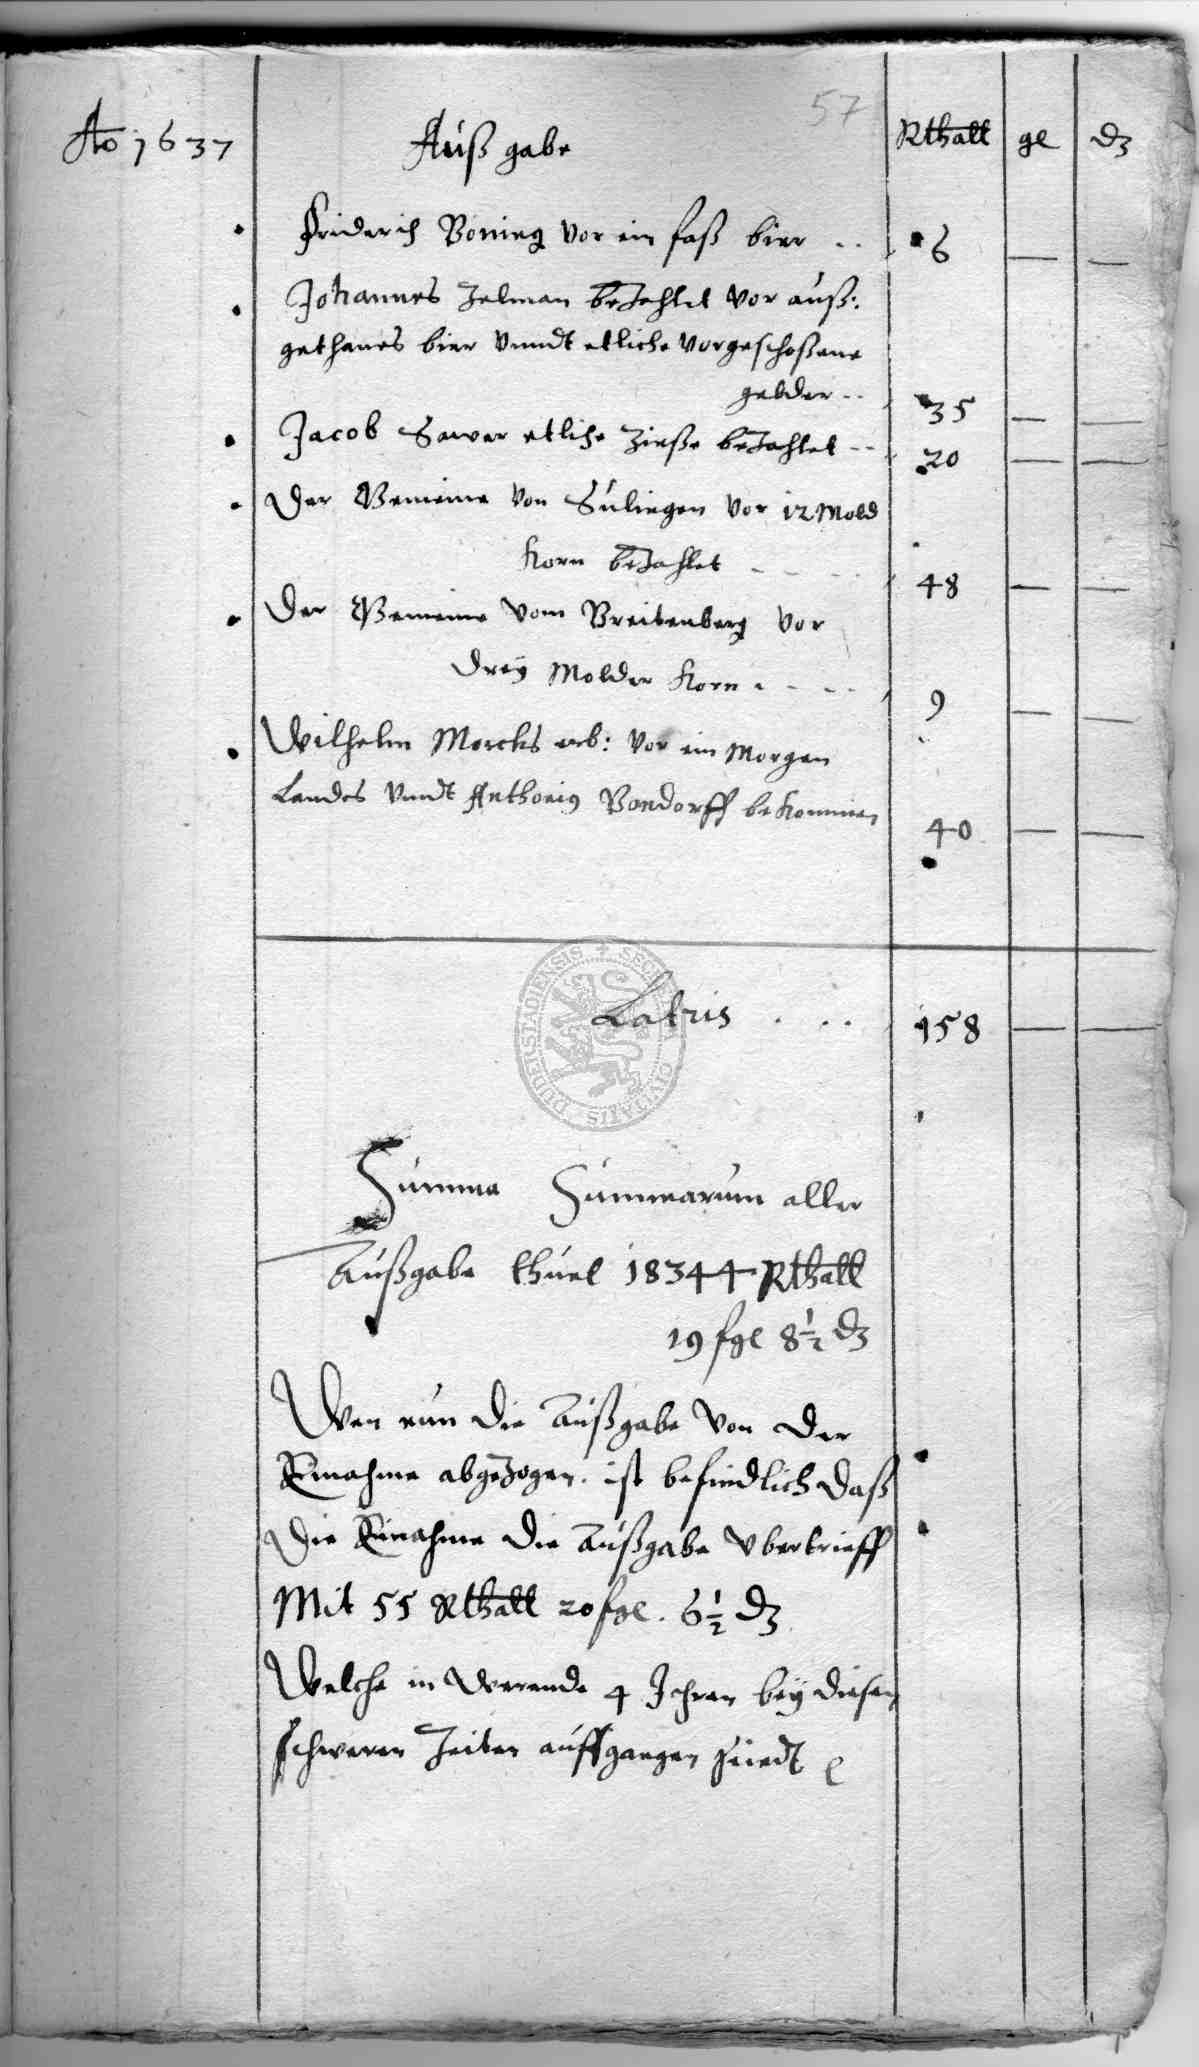 57
Ao 1637 Außgabe Rthall gl d
Friderich Böning vor ein faß bier .. 6 — —
Johannes Zelman beZahlet vor auß:
gethanes bier Vnndt etliche Vorgeschoßene
gelder .. 35 — —
Jacob Sawer etliche Zinße beZahlet -- 20 — —
Der Gemeine von Sulingen vor 12 Mold
Korn beZahlet 48 — —
Der Gemeine vom Breitenberg vor
Dreÿ Molder Korn 9 — —
Wilhelm Morcks erb: vor ein Morgen
Landes Vnndt Anthonig Bondorff bekommen 40 — —
Latris . .. 158 — —
Summa Summarum aller
Außgabe thuet 18344 Rthall
19 fgl 8½ d
Wen nun die Außgabe Von Der
Einahme abgeZogen. ist befindlich Daß
Die Einahme die Außgabe Vbertrieff
Mit 55 Rthall 20 fgl. 6½ d
Welche in werende 4 Jhren beÿ diesen
schweren Zeiten auffgangen sindt
SECR CIVITATIS DUDERSTADIENSIS